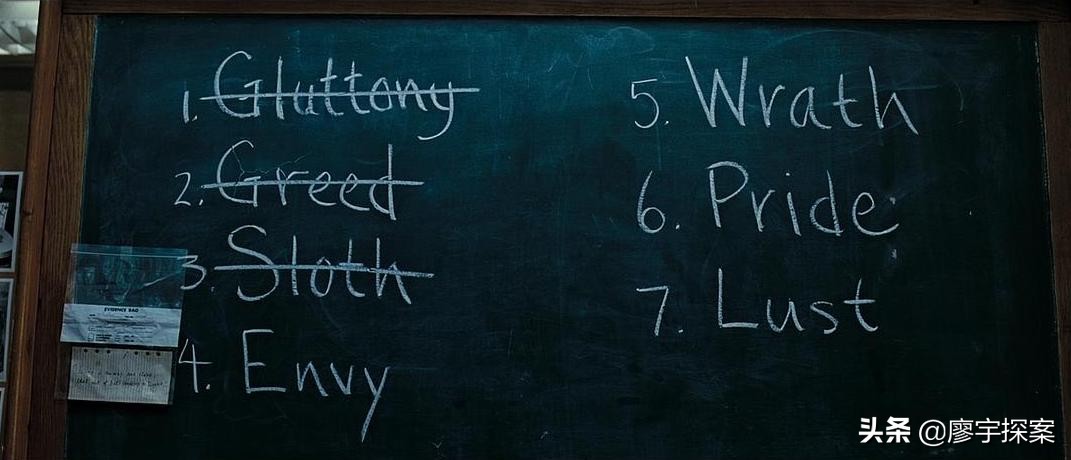 1. Gluttony
2. Greed
3. Sloth
4. Envy
5. Wrath
6. Pride
7. Lust
EVIDENCE BAG
头条 @廖宇探案